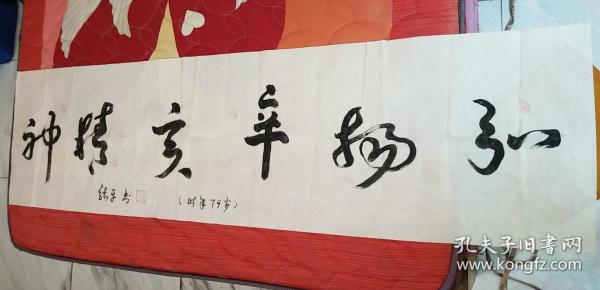 弘扬辛亥精神
(时年79岁)
张平书
孔夫子旧书网
www.kongfz.com